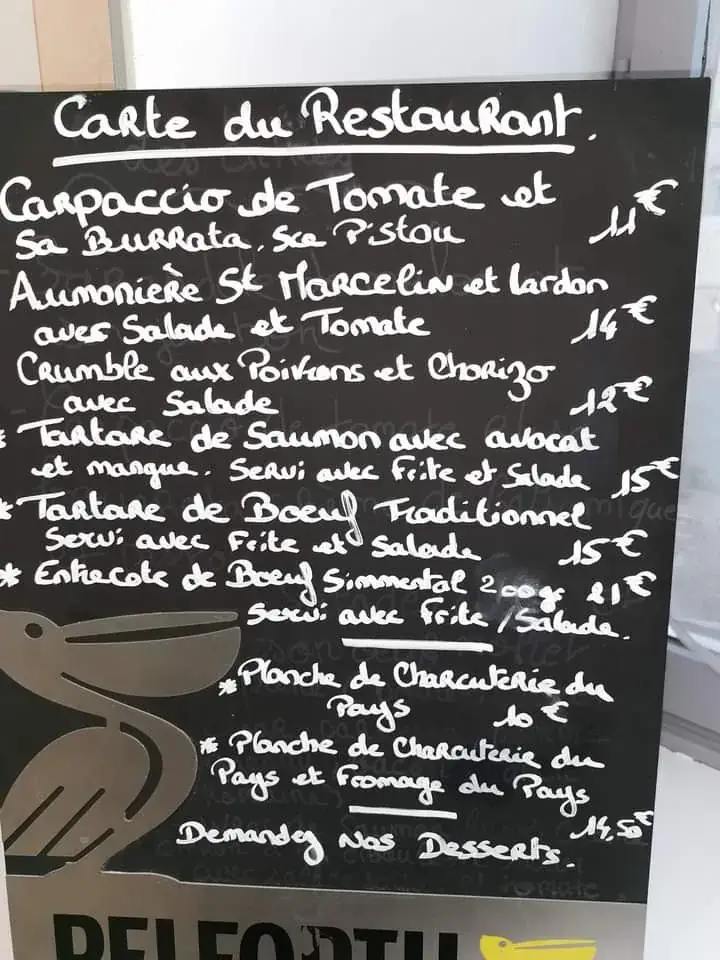 Carte du Restaurant.
Carpaccio de Tomate et
Sa Burrata. Sce Pistou 11€
Aumonière St Marcelin et lardon
avec Salade et Tomate 14€
Crumble aux Poivrons et Chorizo
avec Salade 12€
* Tartare de Saumon avec avocat
et mangue. Servi avec Frite et Salade 15€
* Tartare de Boeuf Traditionnel
Servi avec Frite et Salade 15€
* Entrecote de Boeuf Simmental 200gr 21€
Servi avec Frite / Salade.
* Planche de Charcuterie du
Pays 10€
* Planche de Charcuterie du
Pays et Fromage du Pays
14,50€
Demandez Nos Desserts.
PELFORTH